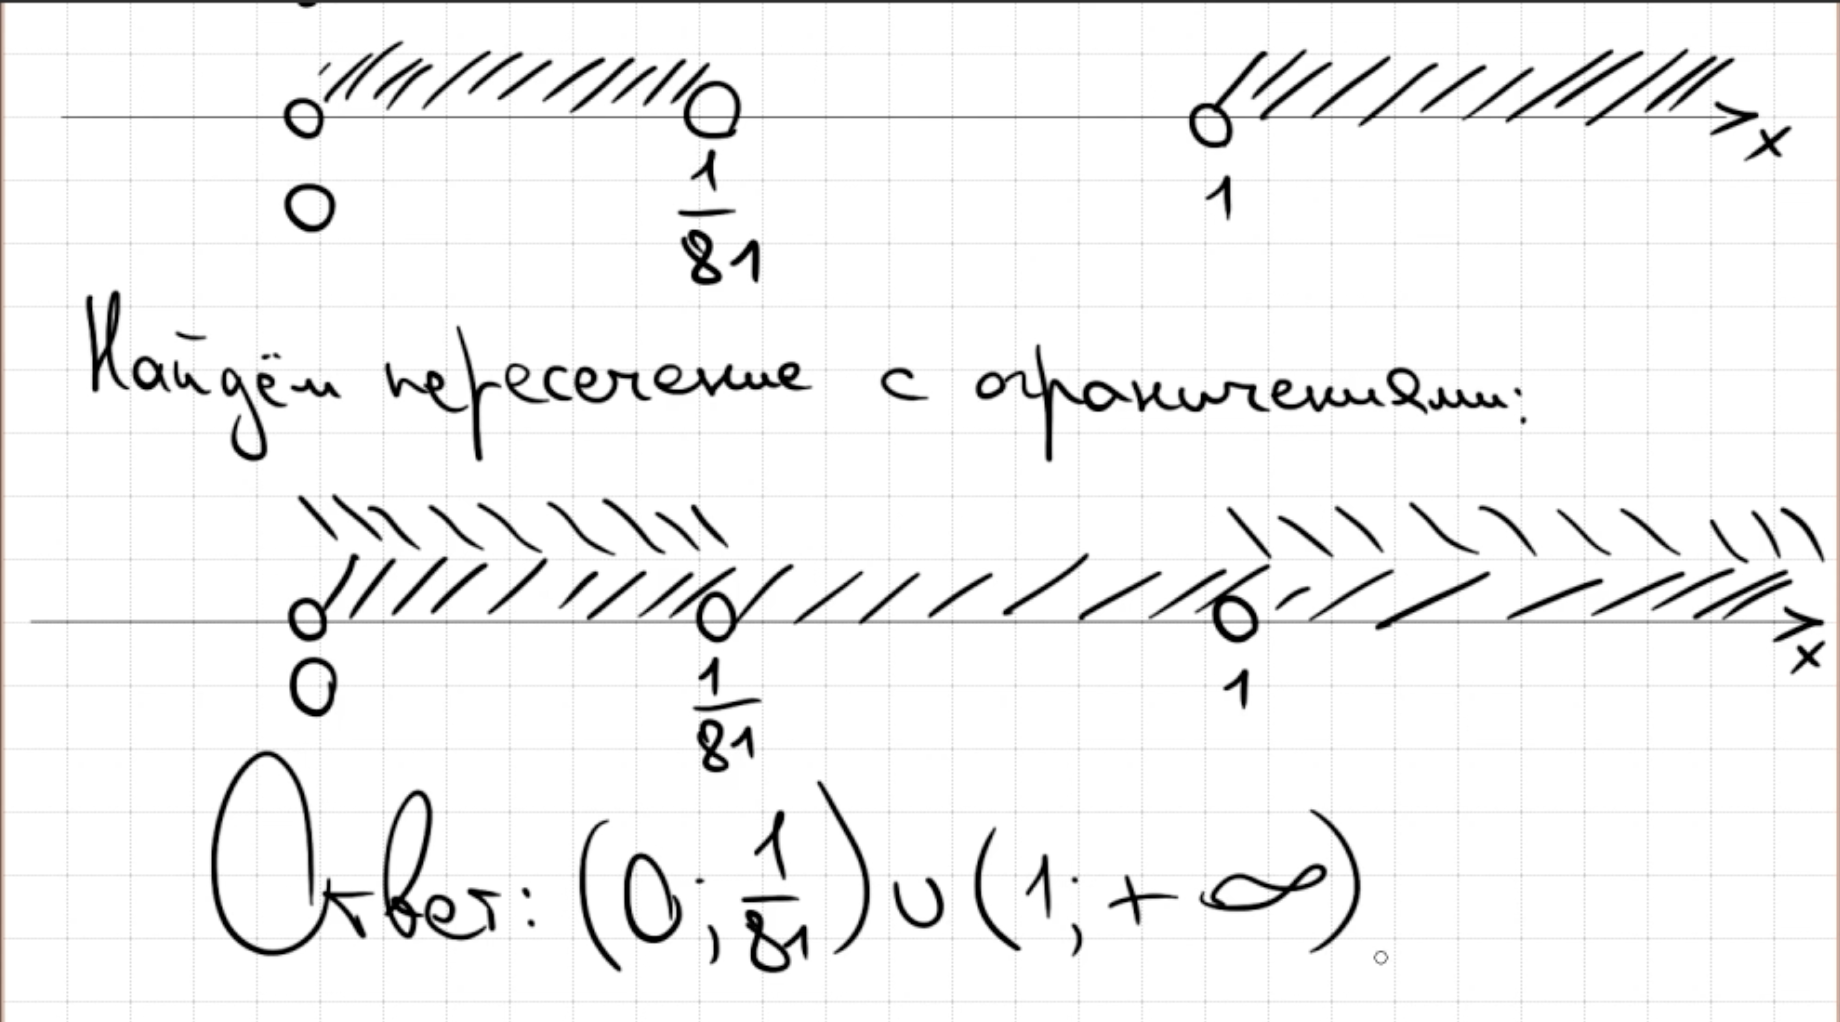 x
0 1/81 1
Найдём пересечение с ограничениями:
x
0 1/81 1
Ответ: (0; 1/81) ∪ (1; +∞)